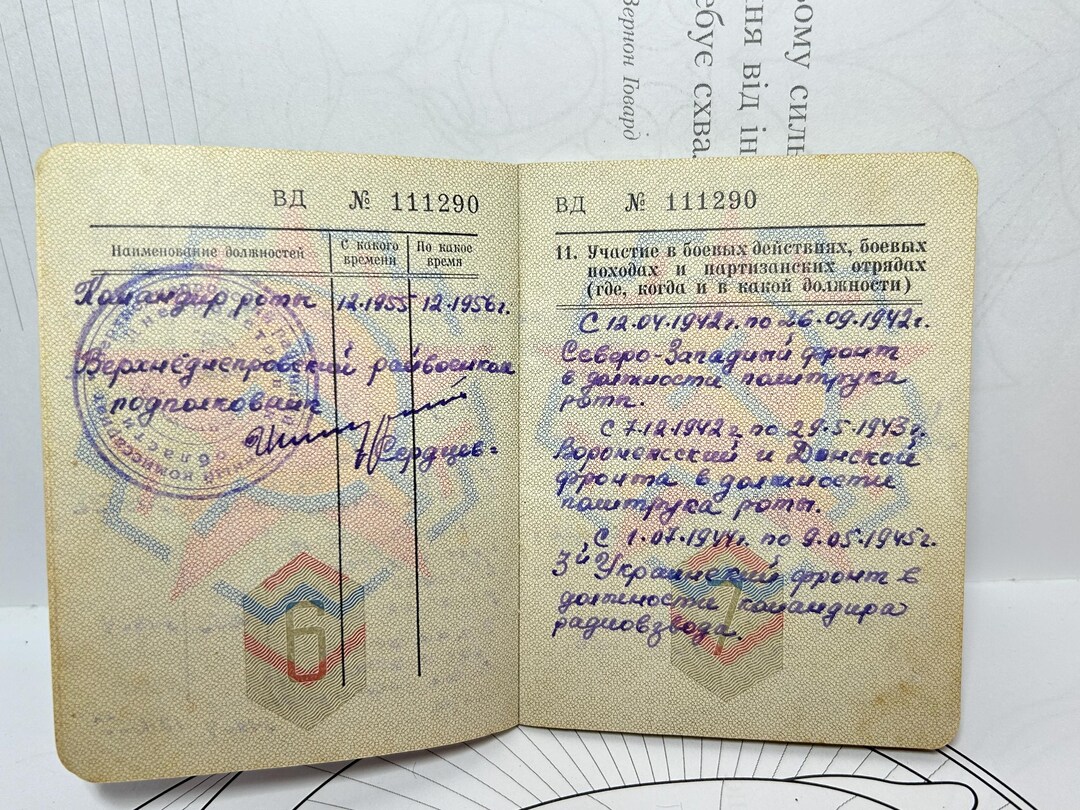 ому силь
ня від ін
ебує схва
Вернон Говард
ВД № 111290
Наименование должностей
С какого времени
По какое время
Командир роты 12.1955 12.1956г.
Верхнеднепровский райвоенком
подполковник
Сердцев
6
ВД № 111290
11. Участие в боевых действиях, боевых
походах и партизанских отрядах
(где, когда и в какой должности)
С 12.04.1942г. по 26.09.1942г.
Северо-Западный фронт
в должности политрука
роты.
С 7.12.1942г. по 29.5.1943г.
Воронежский и Донской
фронта в должности
политрука роты.
С 1.07.1944г. по 9.05.1945г.
3й Украинский фронт в
должности командира
радиовзвода.
7